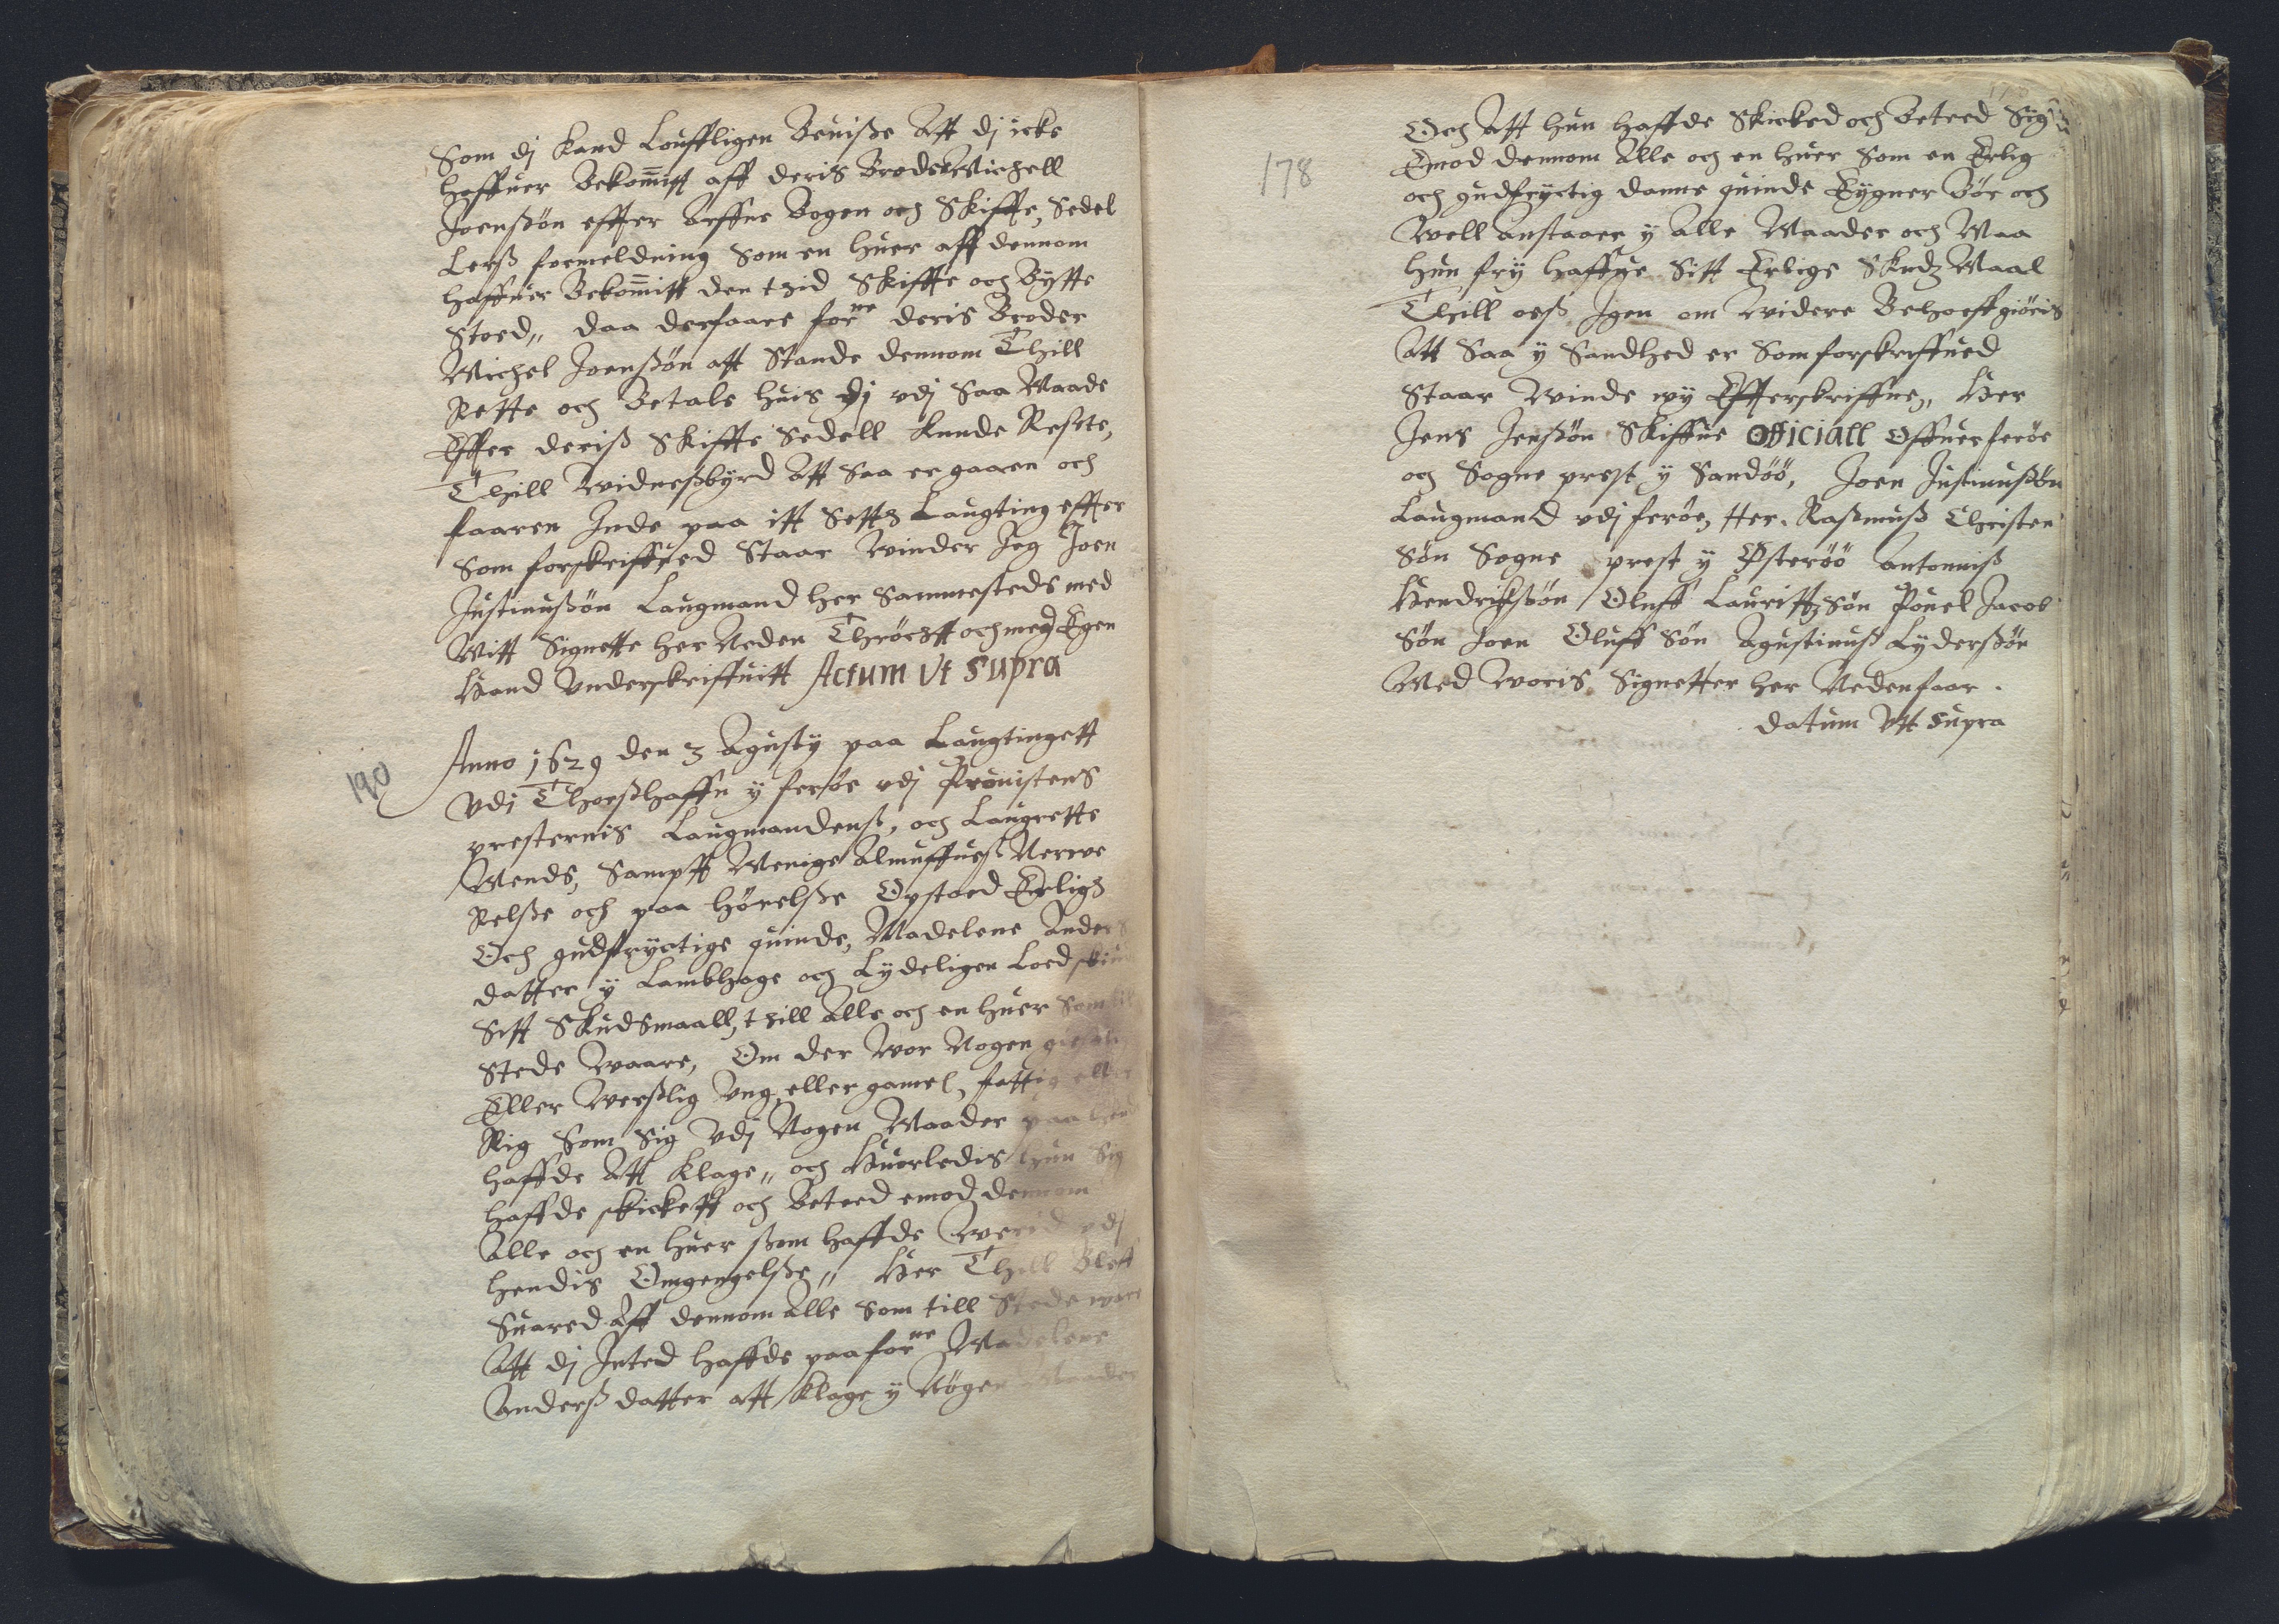 Som dj kand Louffligen Beuisze Att dj icke
haffuer Bekommitt aff deris Broder Michell
Joenszön effter Arffue Bogen och Skiffte, Sedel
Lersz formeldning Som en huer aff dennom
haffuer Bekommitt den thid Skiffte och Bytte
Stoed,, daa derfaare forne deris Broder
Michel Joenszön att Stande dennom Thill
Rette och Betale huis dj vdj Saa Maade
Effter derisz Skiffte Sedell Kunde Reste,
Thill Widneszbyrd Att Saa er gaaren och
faaren Inde paa itt Settz Laugting effter
Som forskreffued Staar Winder Jeg Joen
Justinuszön Laugmand her Sammesteds med
Mitt Signette her Neden Thröchtt och med Egen
Haand Vnderskriffuitt Actum Vt Supra
190
Anno 1629 den 3 Agusty paa Laugtingett
Vdj Thorszhaffn ÿ feröe vdj Prouistens
presternis Laugmandensz, och Laugrette
Mends, Sampt Menige Almuffuesz Nerwe
Relsze och paa hörelsze Opstoed Erligz
Och gudfryctige quinde, Madelene Anders
datter ÿ Lambhage och Lydeligen Loed
Sitt Skudsmaall, thill Alle och en huer Som
Stede Waare, Om der Wor Nogen
Eller Werszlig Vng eller gamel, fattig eller
Rig Som Sig Vdj Nogen Maader paa
haffde Att klage,, och Huorledis hun Sig
haffde skickett och Beteed emod dennom
Alle och en huer szom haffde Werid vdj
hendis Omgengelsze,, Her Thill Bleff
Suared Aff dennom Alle Som till Stede wore
Att dj Inted haffde paa forne Madelene
Andersz datter att klage ÿ Nogen Maader
178
Och Att hun haffde Skicked och Beteed Sig
Emod dennom Alle och en huer Som en Erlig
och gudfryctig danne quinde Eygner Bör och
Well anstaaer ÿ Alle Maader och Maa
hun frÿ haffue Sitt Erlige Skudz Maal
Thill osz Igen om widere Behoeff giöris
Att Saa ÿ Sandhed er Som forskreffued
Staar Winde wy Effterskreffne,, Her
Jens Jenszön Skiffue Officiall Offuer feröe
och Sogne prest ÿ Sandöö, Joen Justinuszön
Laugmand vdj feröe, Her. Raszmusz Christen
Sön Sogne prest ÿ Österöö Antonnisz
Hendrikszön Oluff Lauritzsön Pouel Jacob
Sön Joen Oluff Sön Agustinusz Lyderszön
Med woris Signetter her Nedenfaar.
datum Vtt Supra